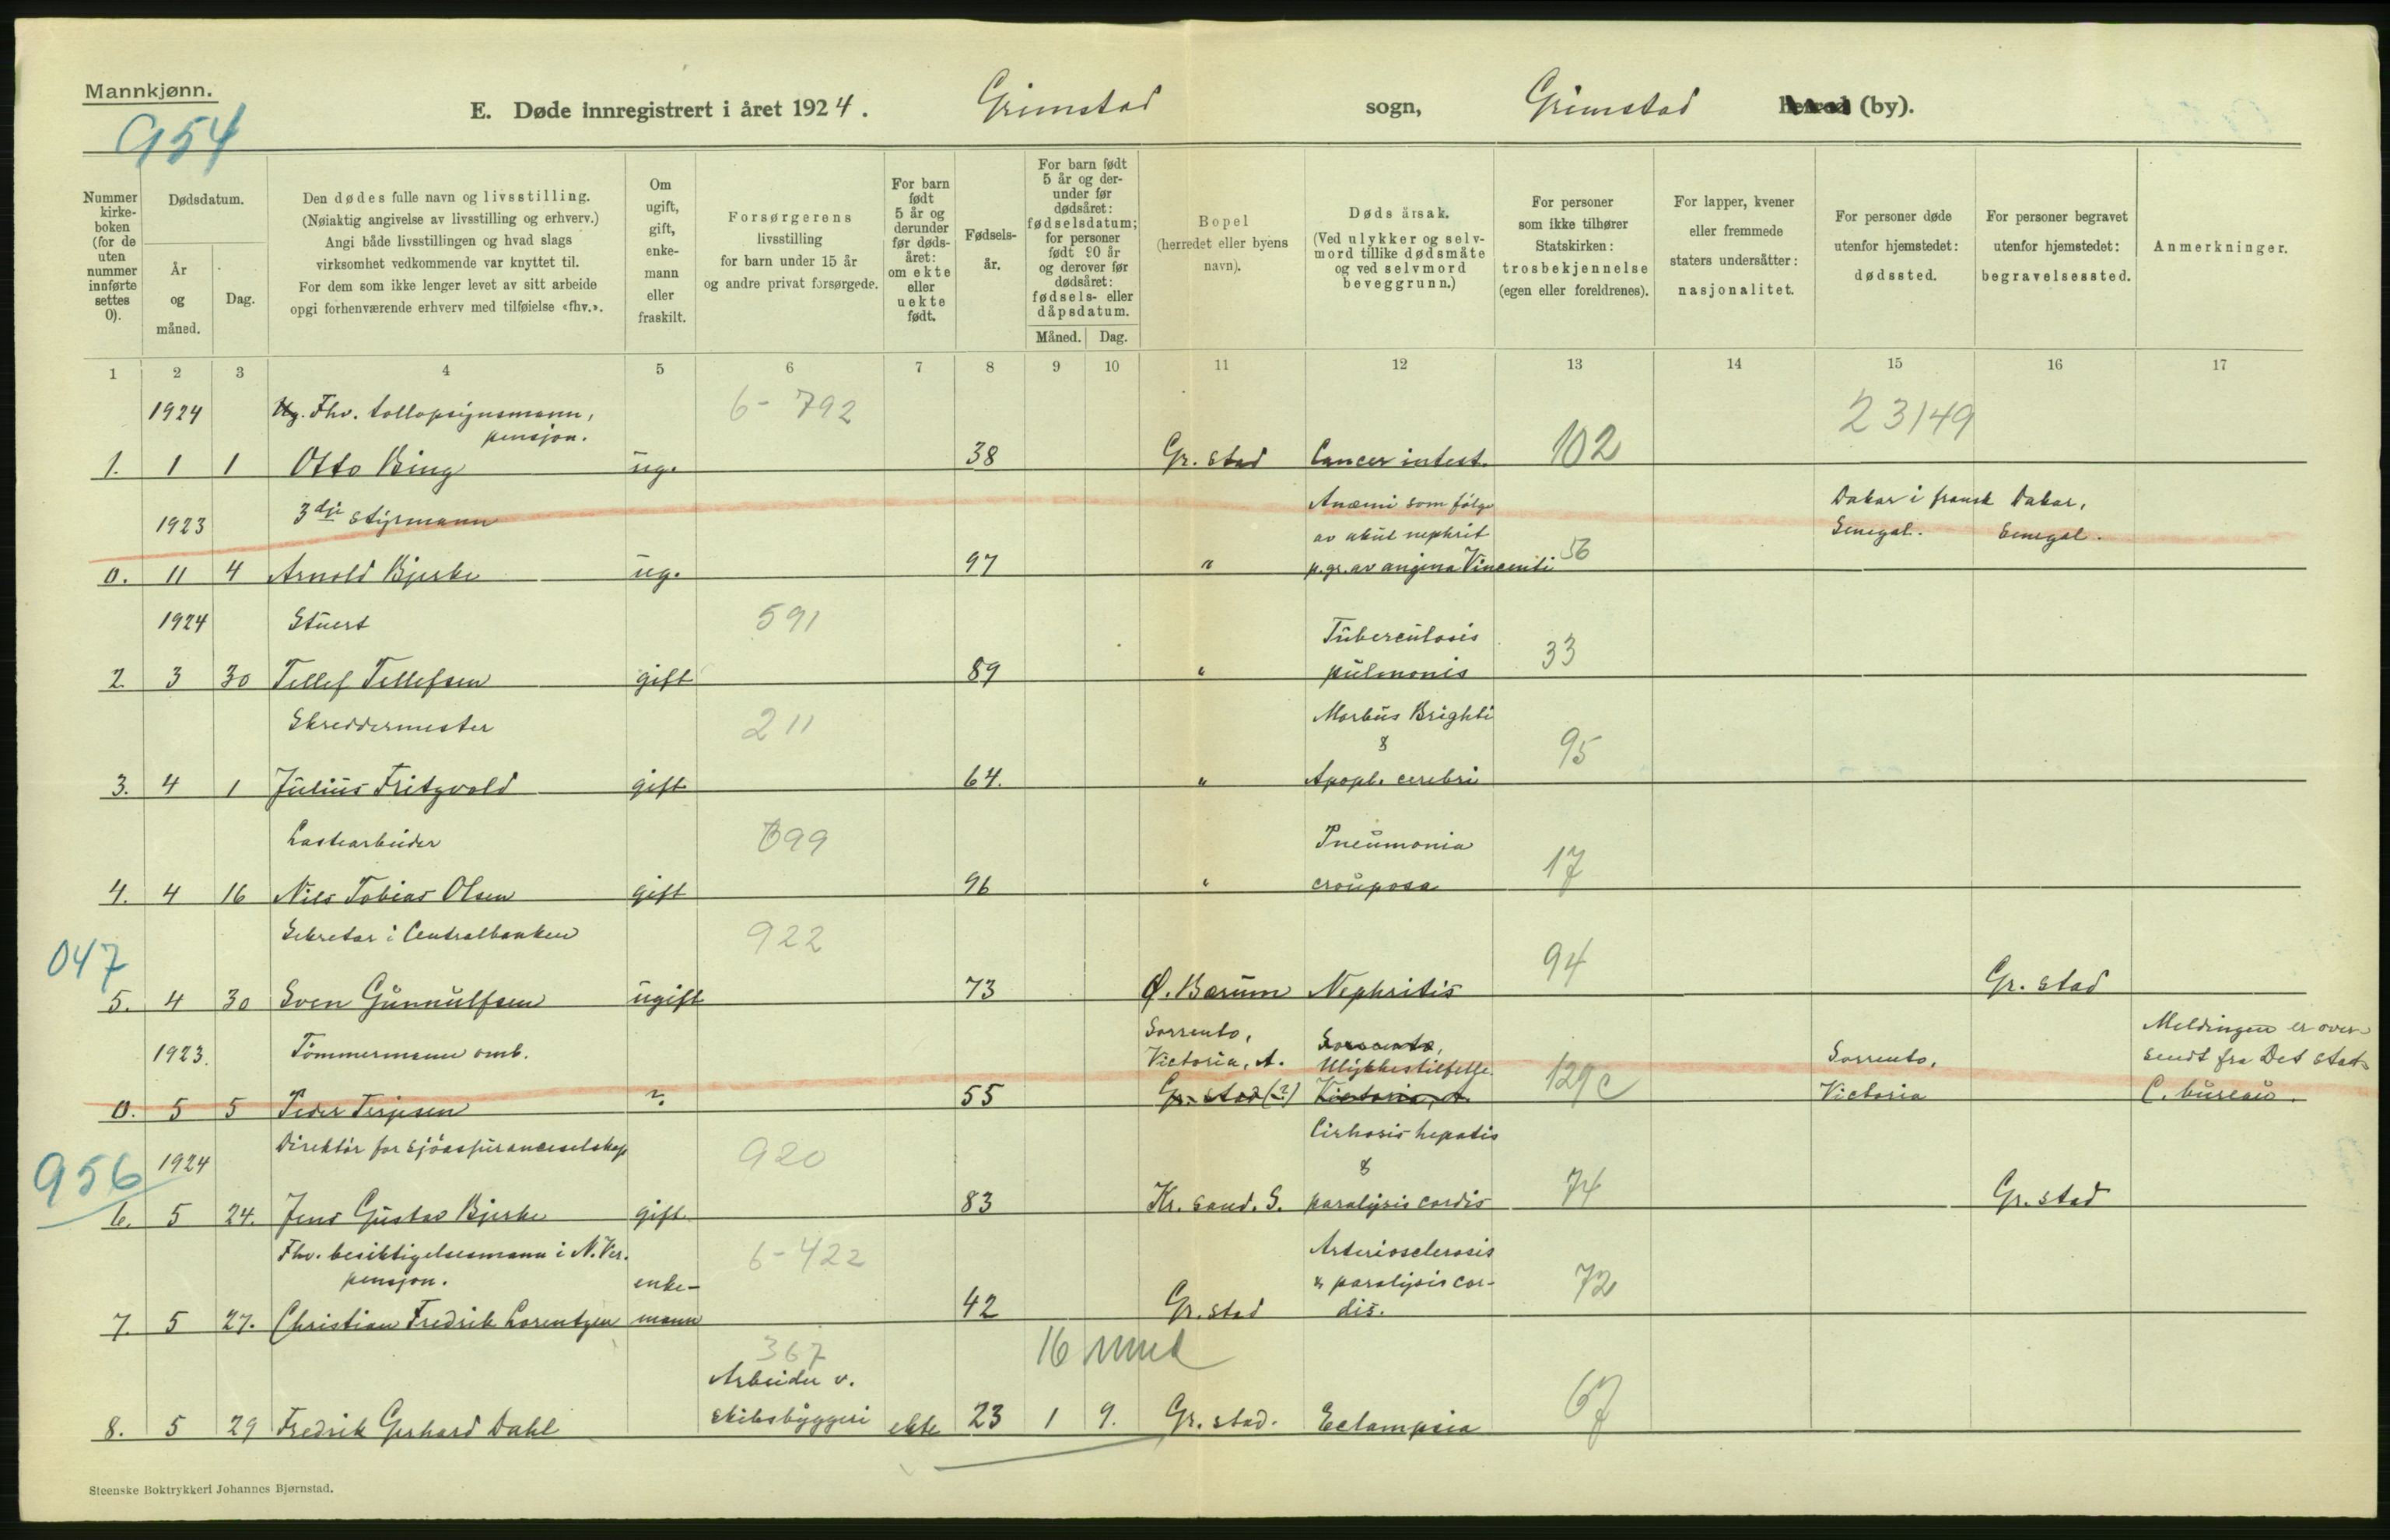 Mannkjønn.
954
E. Døde innregistrert i året 1924. Grimstad sogn, Grimstad herred (by).
Nummer kirke- boken (for de uten nummer innførte settes 0).
Dødsdatum.
År og måned.
Dag.
Den dødes fulle navn og livsstilling.
(Nøiaktig angivelse av livsstilling og erhverv.)
Angi både livsstillingen og hvad slags
virksomhet vedkommende var knyttet til.
For dem som ikke lenger levet av sitt arbeide
opgi forhenværende erhverv med tilføielse «fhv.».
Om ugift, gift, enke- mann eller fraskilt.
Forsørgerens
livsstilling
for barn under 15 år
og andre privat forsørgede.
For barn født 5 år og derunder før døds- året: om ekte eller uekte født.
Fødsels- år.
For barn født 5 år og der- under før dødsåret: fødselsdatum; for personer født 90 år og derover før dødsåret: fødsels- eller dåpsdatum.
Måned. Dag.
Bopel
(herredet eller byens
navn).
Døds årsak.
(Ved ulykker og selv-
mord tillike dødsmåte
og ved selvmord
beveggrunn.)
For personer
som ikke tilhører
Statskirken:
trosbekjennelse
(egen eller foreldrenes).
For lapper, kvener
eller fremmede
staters undersåtter:
nasjonalitet.
For personer døde
utenfor hjemstedet:
dødssted.
For personer begravet
utenfor hjemstedet:
begravelsessted.
Anmerkninger.
1 2 3 4 5 6 7 8 9 10 11 12 13 14 15 16 17
1924 Fhv. tollopsynsmann, 6- 792 23149
pensjon.
1. 1 1 Otto Bing ug. 38 Gr. stad Cancer intest. 102
1923 3dje styrmann Anæmi som følge Dakar i fransk Dakar,
av akut nephrit Senegal. Senegal.
0. 11 4 Arnold Bjerke ug. 97 " p.gr. av angina Vincenti 56
1924 Stuert 591 Tuberculosis
2 3 30 Tellef Tellefsen gift 89 " pulmonis 33
Skreddermester 211 Morbus Brighti
&
3. 4 1 Julius Fritzvold gift 64. " Apopl. cerebri 95
Lastearbeider 699 Pneumonia
4. 4 16 Nils Tobias Olsen gift 96 " crouposa 17
047
Sekretær i Centralbanken 922
5. 4 30 Sven Gunnulfsen ugift 73 Ø. Bærum Nephritis 94 Gr. stad
1923. Tømmermann omb. Sorrento, Sorrento, Sorrento, Meldingen er over-
Victoria, A. Ulykkestilfelle sendt fra Det stat.
0. 5 5 Peder Terjesen ? 55 Gr. stad (?) Victoria, A. 129c Victoria C. bureau.
956
1924 Direktør for sjøassuranceselskap 920 Cirhosis hepatis
&
6. 5 24. Jens Gustav Bjerke gift 83 Kr. sand. S. paralysis cordis 74 Gr. stad
Fhv. besiktigelsesmann i N. Ver. 6-422 Arteriosclerosis
pensjon. enke- & paralysis cor-
7. 5 27. Christian Fredrik Lorentzen mann 42 Gr. stad dis. 72
367 16 mnd
Arbeider v.
8. 5 29 Fredrik Gerhard Dahl skibsbyggeri ekte 23 1 9. Gr. stad. Eclampsia 67
Steenske Boktrykkeri Johannes Bjørnstad.